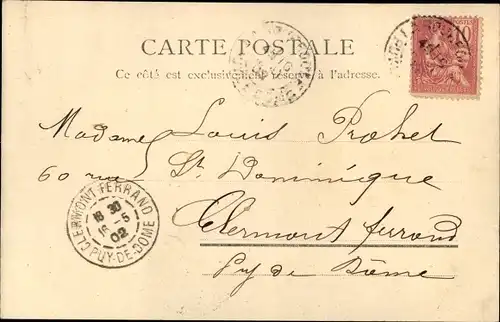 CARTE POSTALE
Ce côté est exclusivement réservé à l'adresse.
10
POSTES
Madame Louis Prohet
60 rue St. Dominique
Clermont ferrand
Puy de Dôme
CLERMONT-FERRAND
18 30
16 -5
02
PUY-DE-DOME